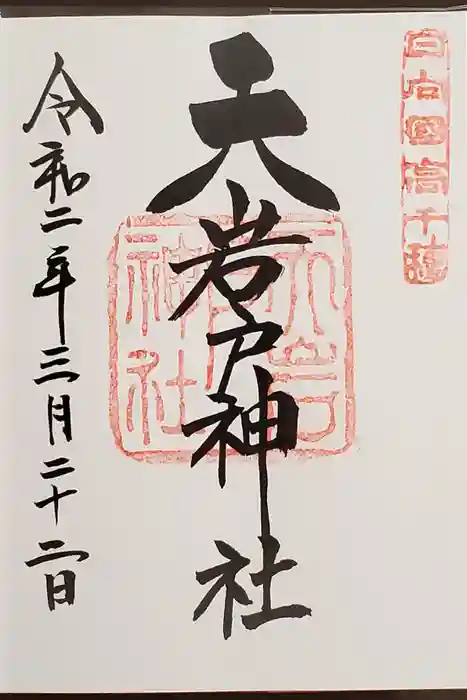 日向國高千穂
天岩戸神社
天岩戸神社
令和二年三月二十二日